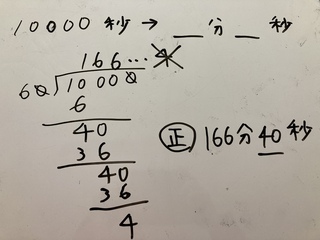 10000秒 → __分__秒
166…4
60)10000
6
40
36
40
36
4
正 166分40秒